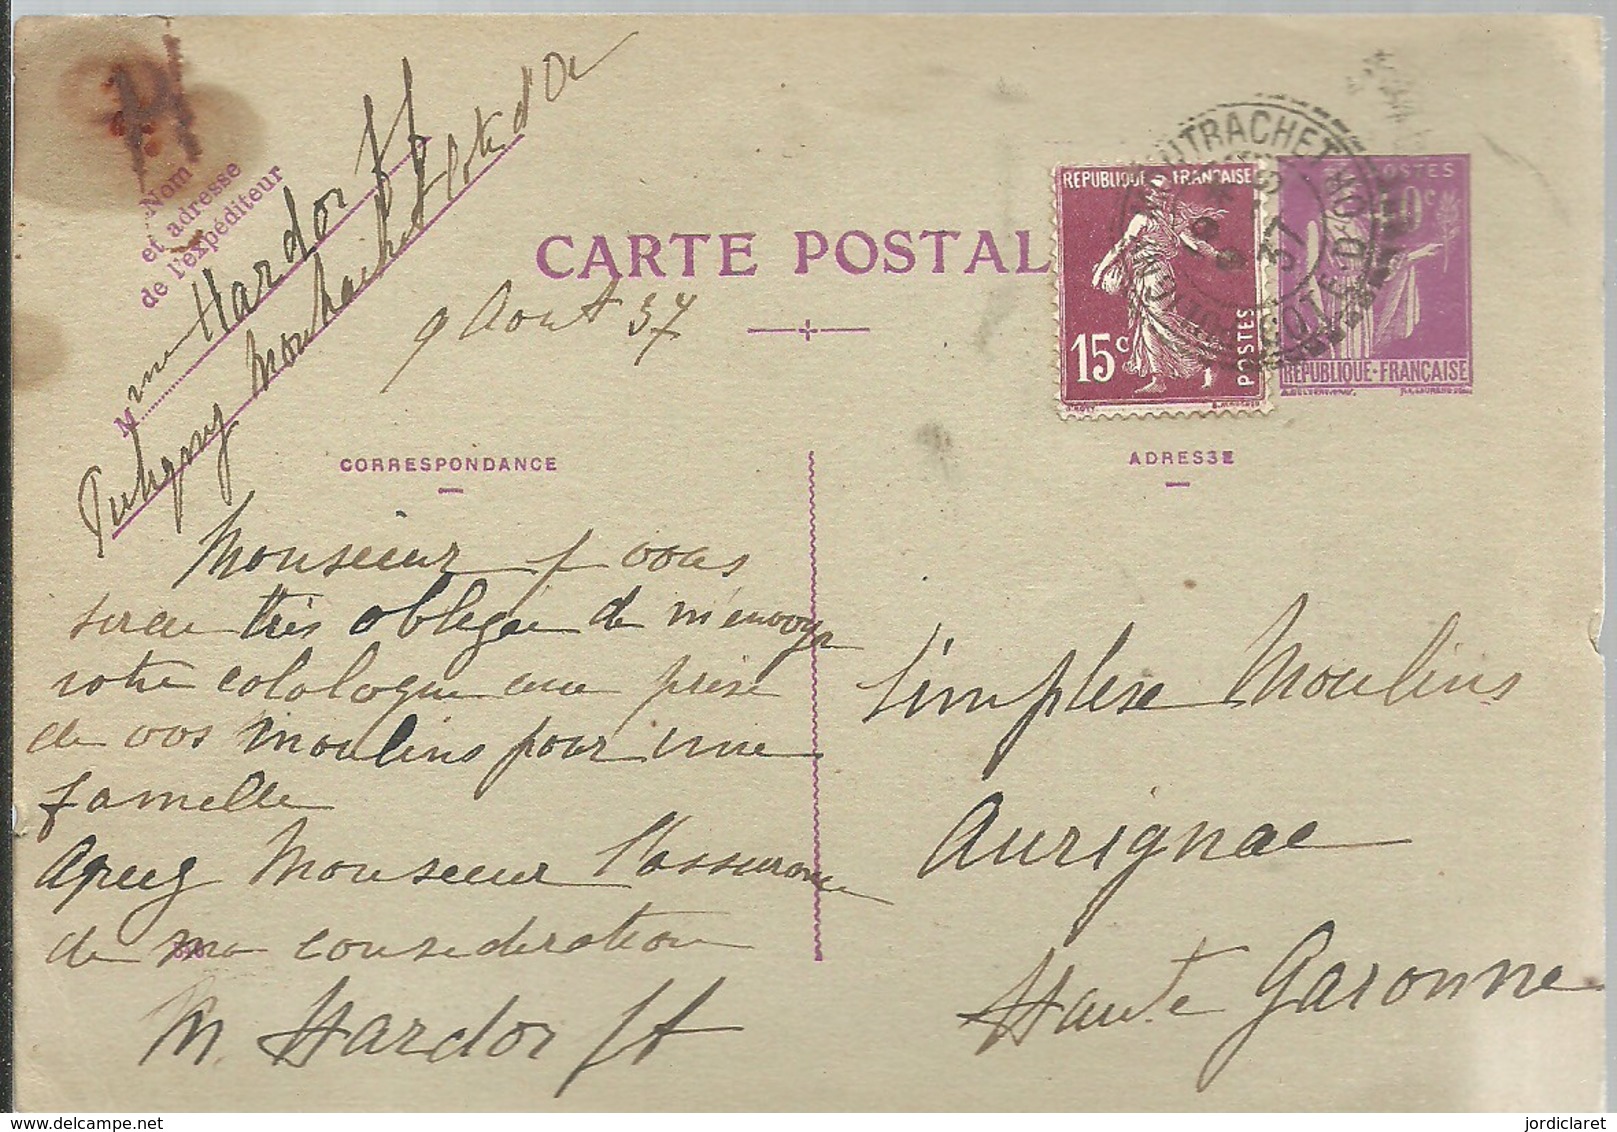 Nom
et adresse
de l'expéditeur
Mme Hardorff
Puligny Montrachet Côte d'Or
CARTE POSTALE
9 Aout 37
REPUBLIQUE FRANÇAISE
15c
POSTES
POSTES
40c
REPUBLIQUE-FRANÇAISE
MONTRACHET
CÔTE D'OR
9 8 37
CORRESPONDANCE
Monsieur j vous
serai très obligée de m'envoyer
votre catalogue avec prise
de vos moulins pour une
famille
agreez Monsieur l'assurance
de ma consideration
M. Hardorff
ADRESSE
Simplese Moulins
Aurignac
Haute Garonne
jordiclaret